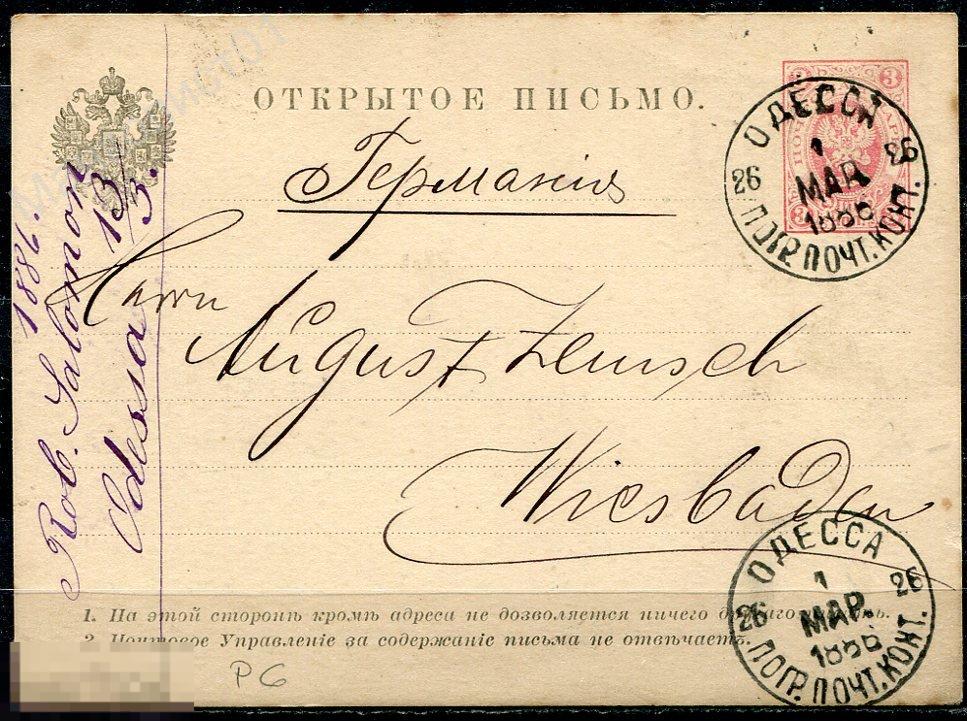 ОТКРЫТОЕ ПИСЬМО.
Германія
Herrn
August
Wiesbaden
1886. 13/3.
Rob. Salomon
Odessa
ОДЕССА
26 1 26
МАР.
1886
ПОГР. ПОЧТ. КОНТ.
ОДЕССА
26 1 26
МАР.
1886
ПОГР. ПОЧТ. КОНТ.
3 3
3
1. На этой сторонѣ кромѣ адреса не дозволяется ничего
2. Почтовое Управленіе за содержаніе письма не отвѣчаетъ.
P6